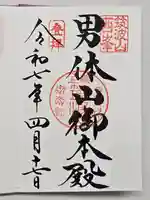 筑波山
男体山御本殿
登拝
令和七年四月十七日